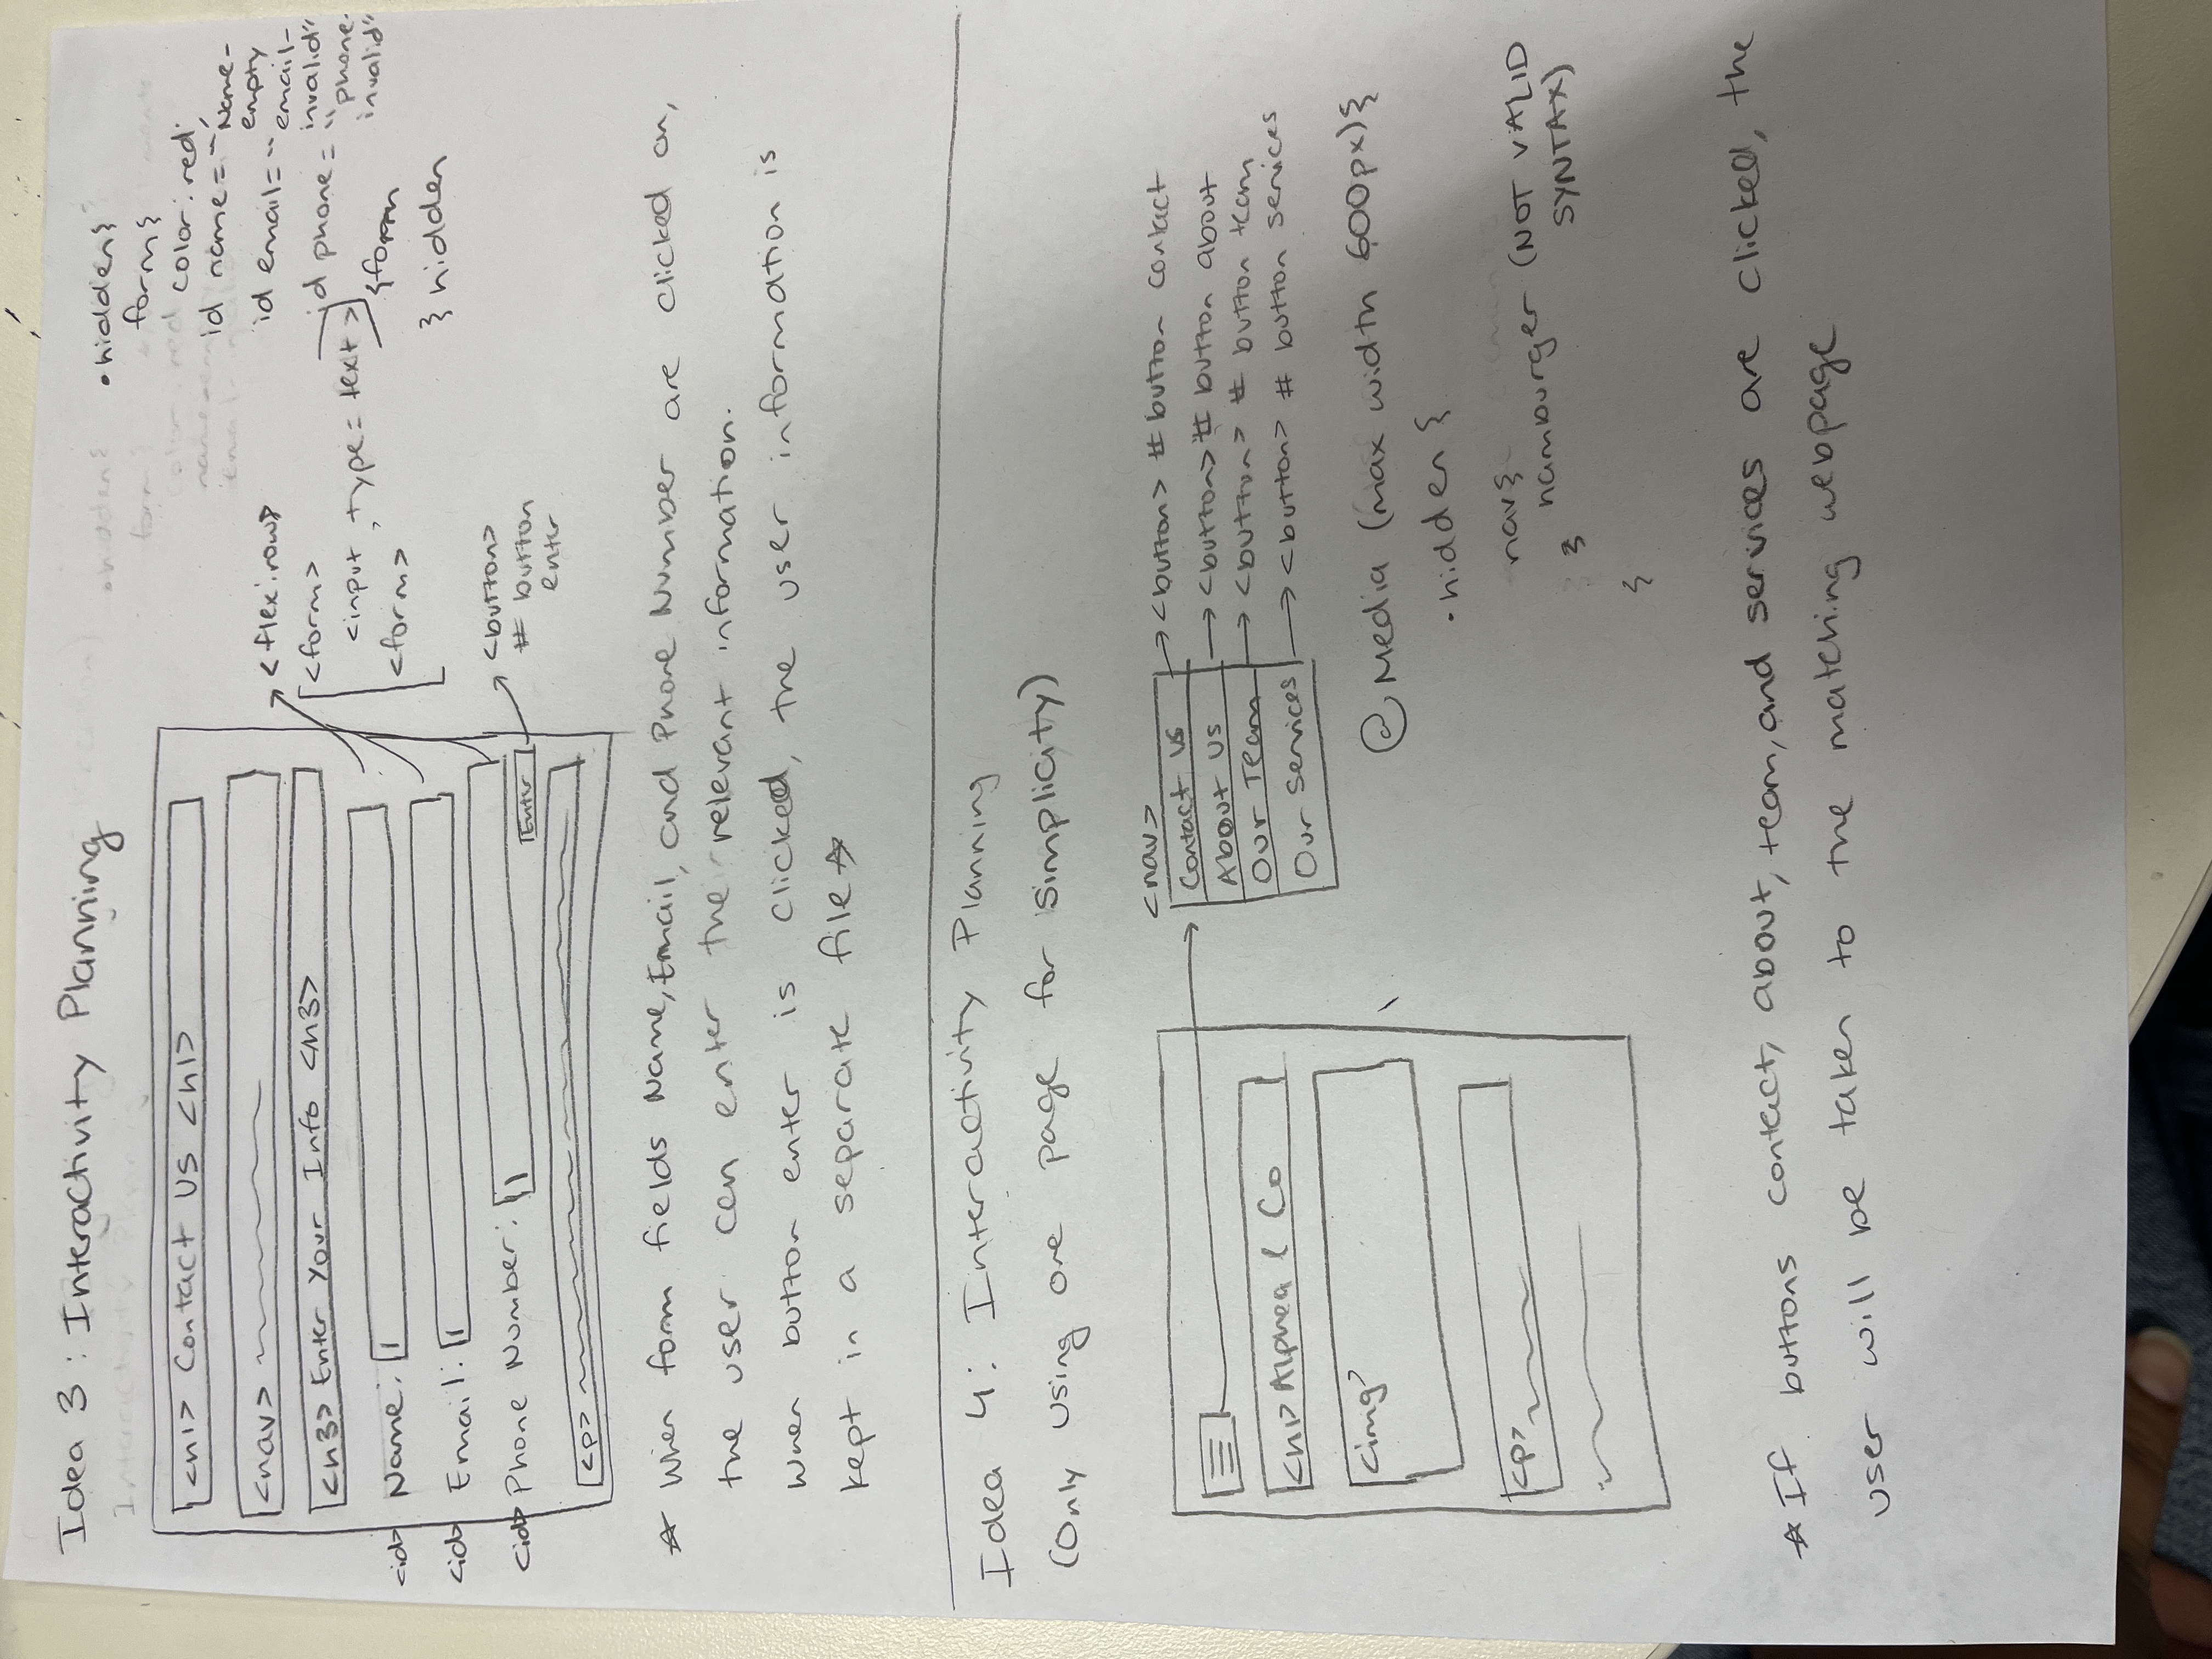 Idea 3 : Interactivity Planning
<h1> Contact Us <h1>
<nav>
<h3> Enter Your Info <h3>
<id> Name:
<id> Email:
<id> Phone Number:
Enter
<p>
<flex:row>
<form>
<input type = text >
<form>
<button>
# button
enter
.hidden{
form{
color: red;
id name = "Name-
empty
id email = "email-
invalid"
id phone = "phone-
invalid"
}form
} hidden
☆ When form fields Name, Email, and Phone Number are clicked on,
the user can enter the relevant information.
When button enter is clicked, the user information is
kept in a separate file ☆
Idea 4: Interactivity Planning
(Only using one page for simplicity)
<h1> Alpheal & Co
<img>
<p>
<nav>
Contact Us → <button> # button contact
About Us → <button> # button about
Our Team → <button> # button team
Our Services → <button> # button services
@Media (max width 600px){
.hidden {
nav{
hamburger (NOT VALID
SYNTAX)
}
}
☆ If buttons contact, about, team, and services are clicked, the
user will be taken to the matching webpage